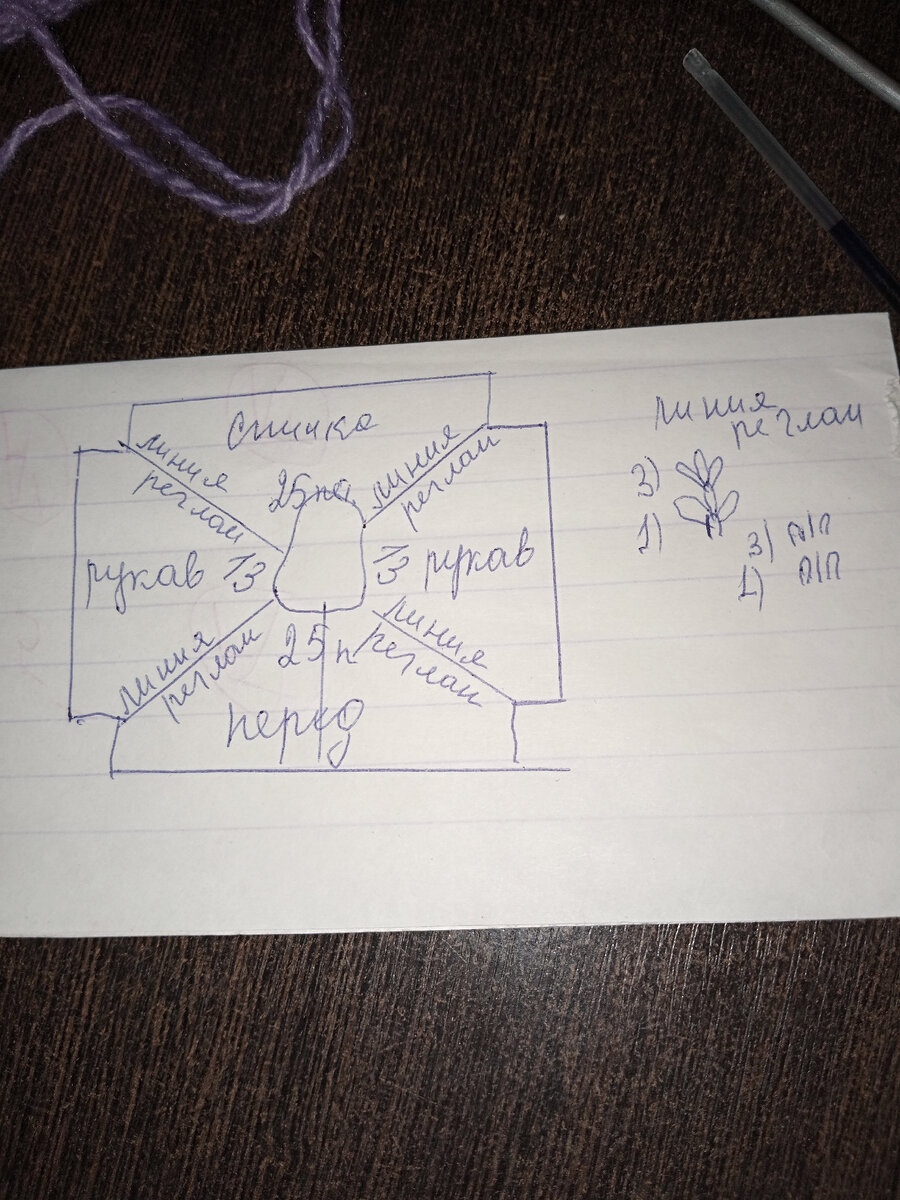 Спинка
линия
реглан
25 по
линия
реглан
рукав 13
13 рукав
линия
реглан
25 п
линия
реглан
перед
линия
реглан
3)
1)
3) п/п
1) п/п